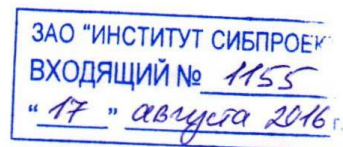 ЗАО "ИНСТИТУТ СИБПРОЕК
ВХОДЯЩИЙ № 1155
" 17 " августа 2016 г.